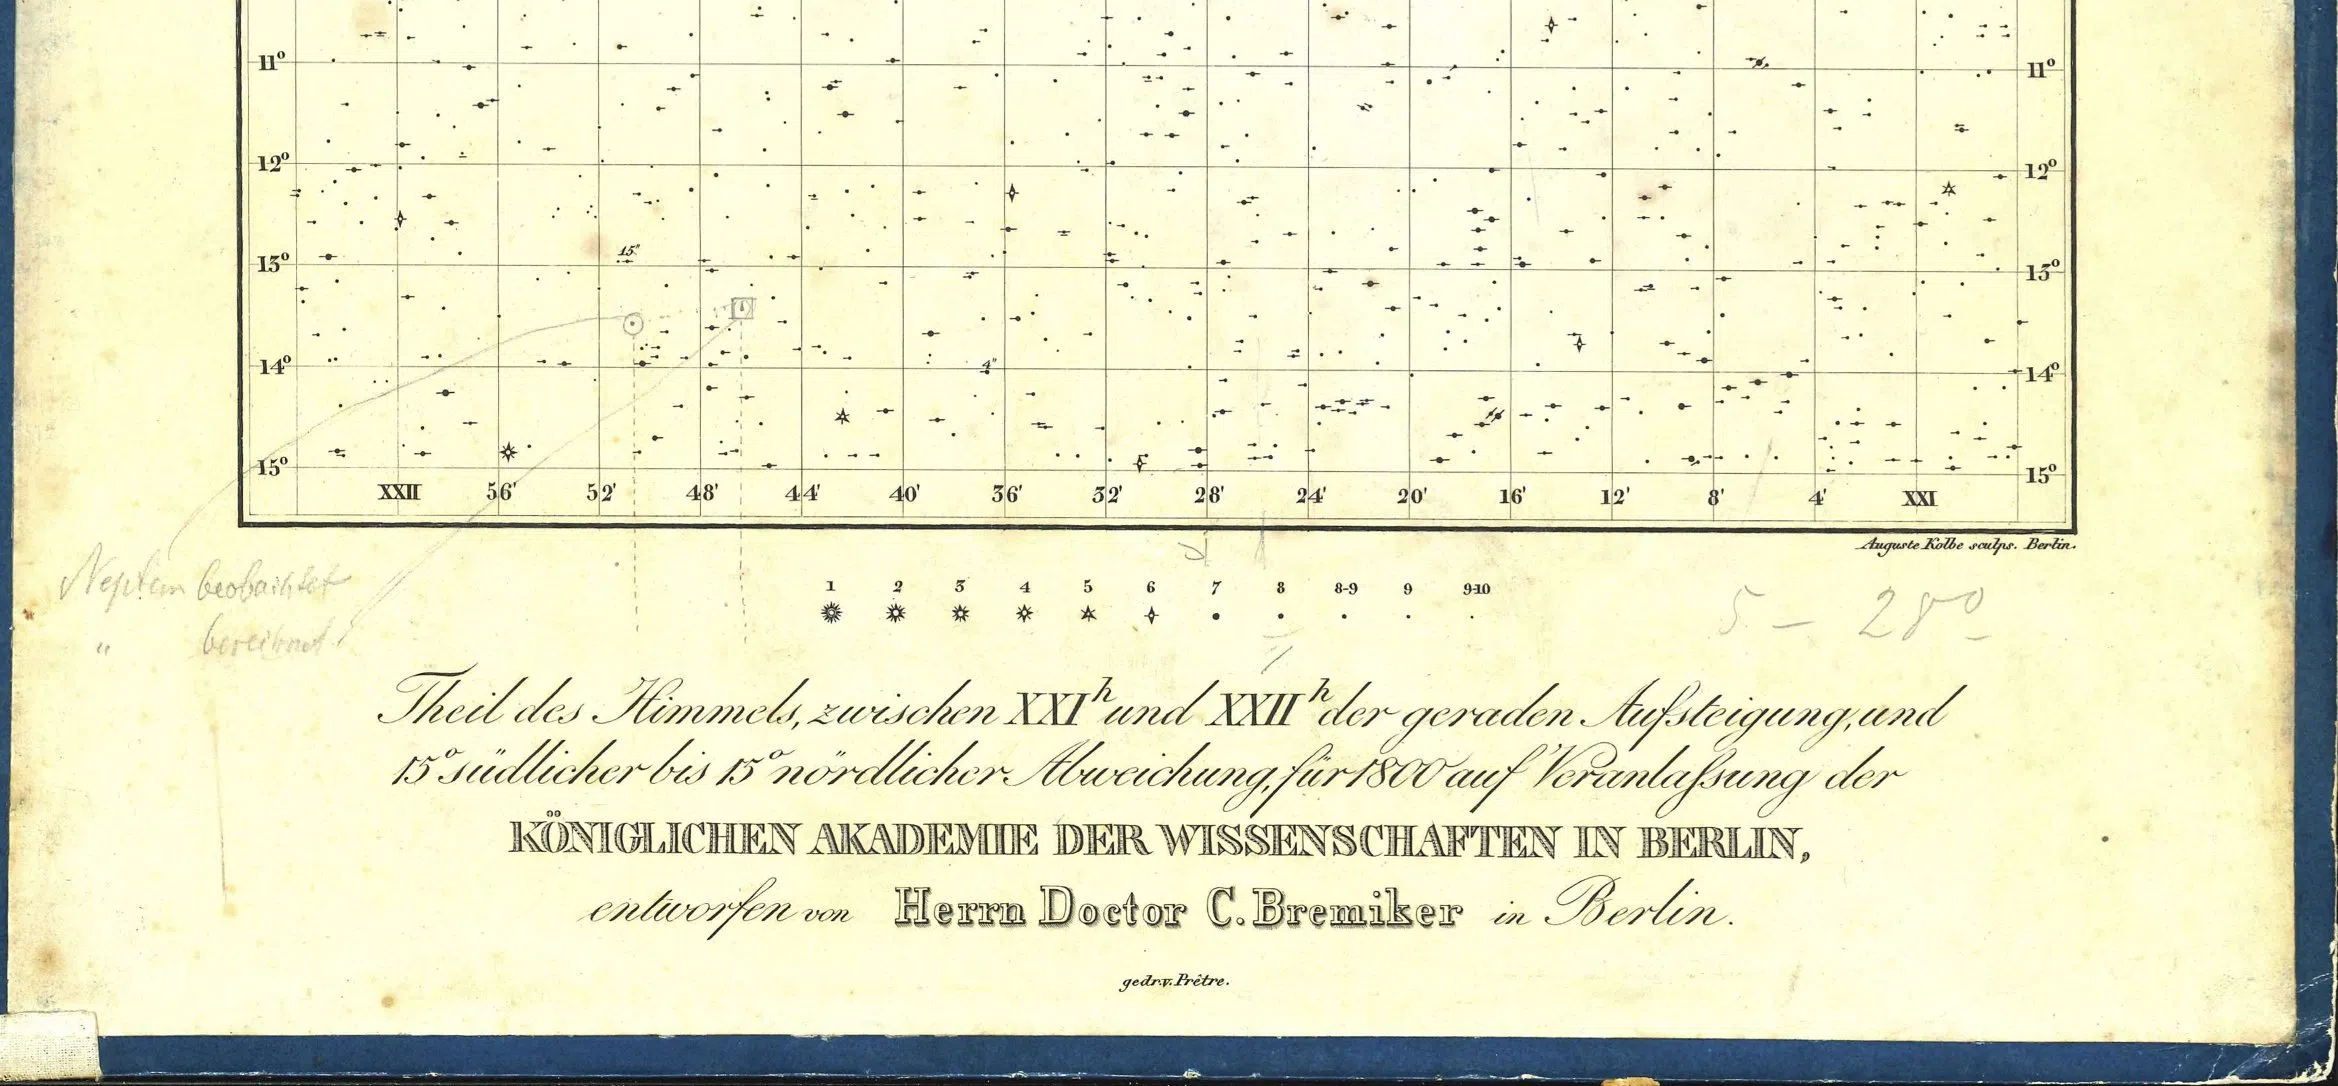 11° 11°
12° 12°
15"
13° 13°
14° 4" 14°
15° 15°
XXII 56' 52' 48' 44' 40' 36' 32' 28' 24' 20' 16' 12' 8' 4' XXI
Auguste Kolbe sculps. Berlin.
Neptun beobachtet
" berechnet
1 2 3 4 5 6 7 8 8-9 9 9-10
5 — 28°
Theil des Himmels, zwischen XXIʰ und XXIIʰ der geraden Aufsteigung, und
15° südlicher bis 15° nördlicher Abweichung, für 1800 auf Veranlaſsung der
KÖNIGLICHEN AKADEMIE DER WISSENSCHAFTEN IN BERLIN,
entworfen von Herrn Doctor C. Bremiker in Berlin.
gedr. v. Prêtre.